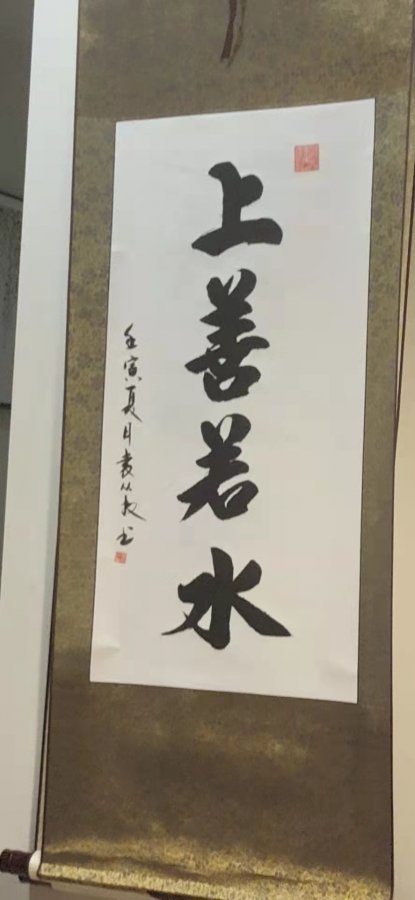 上善若水
壬寅夏月袁从牧书